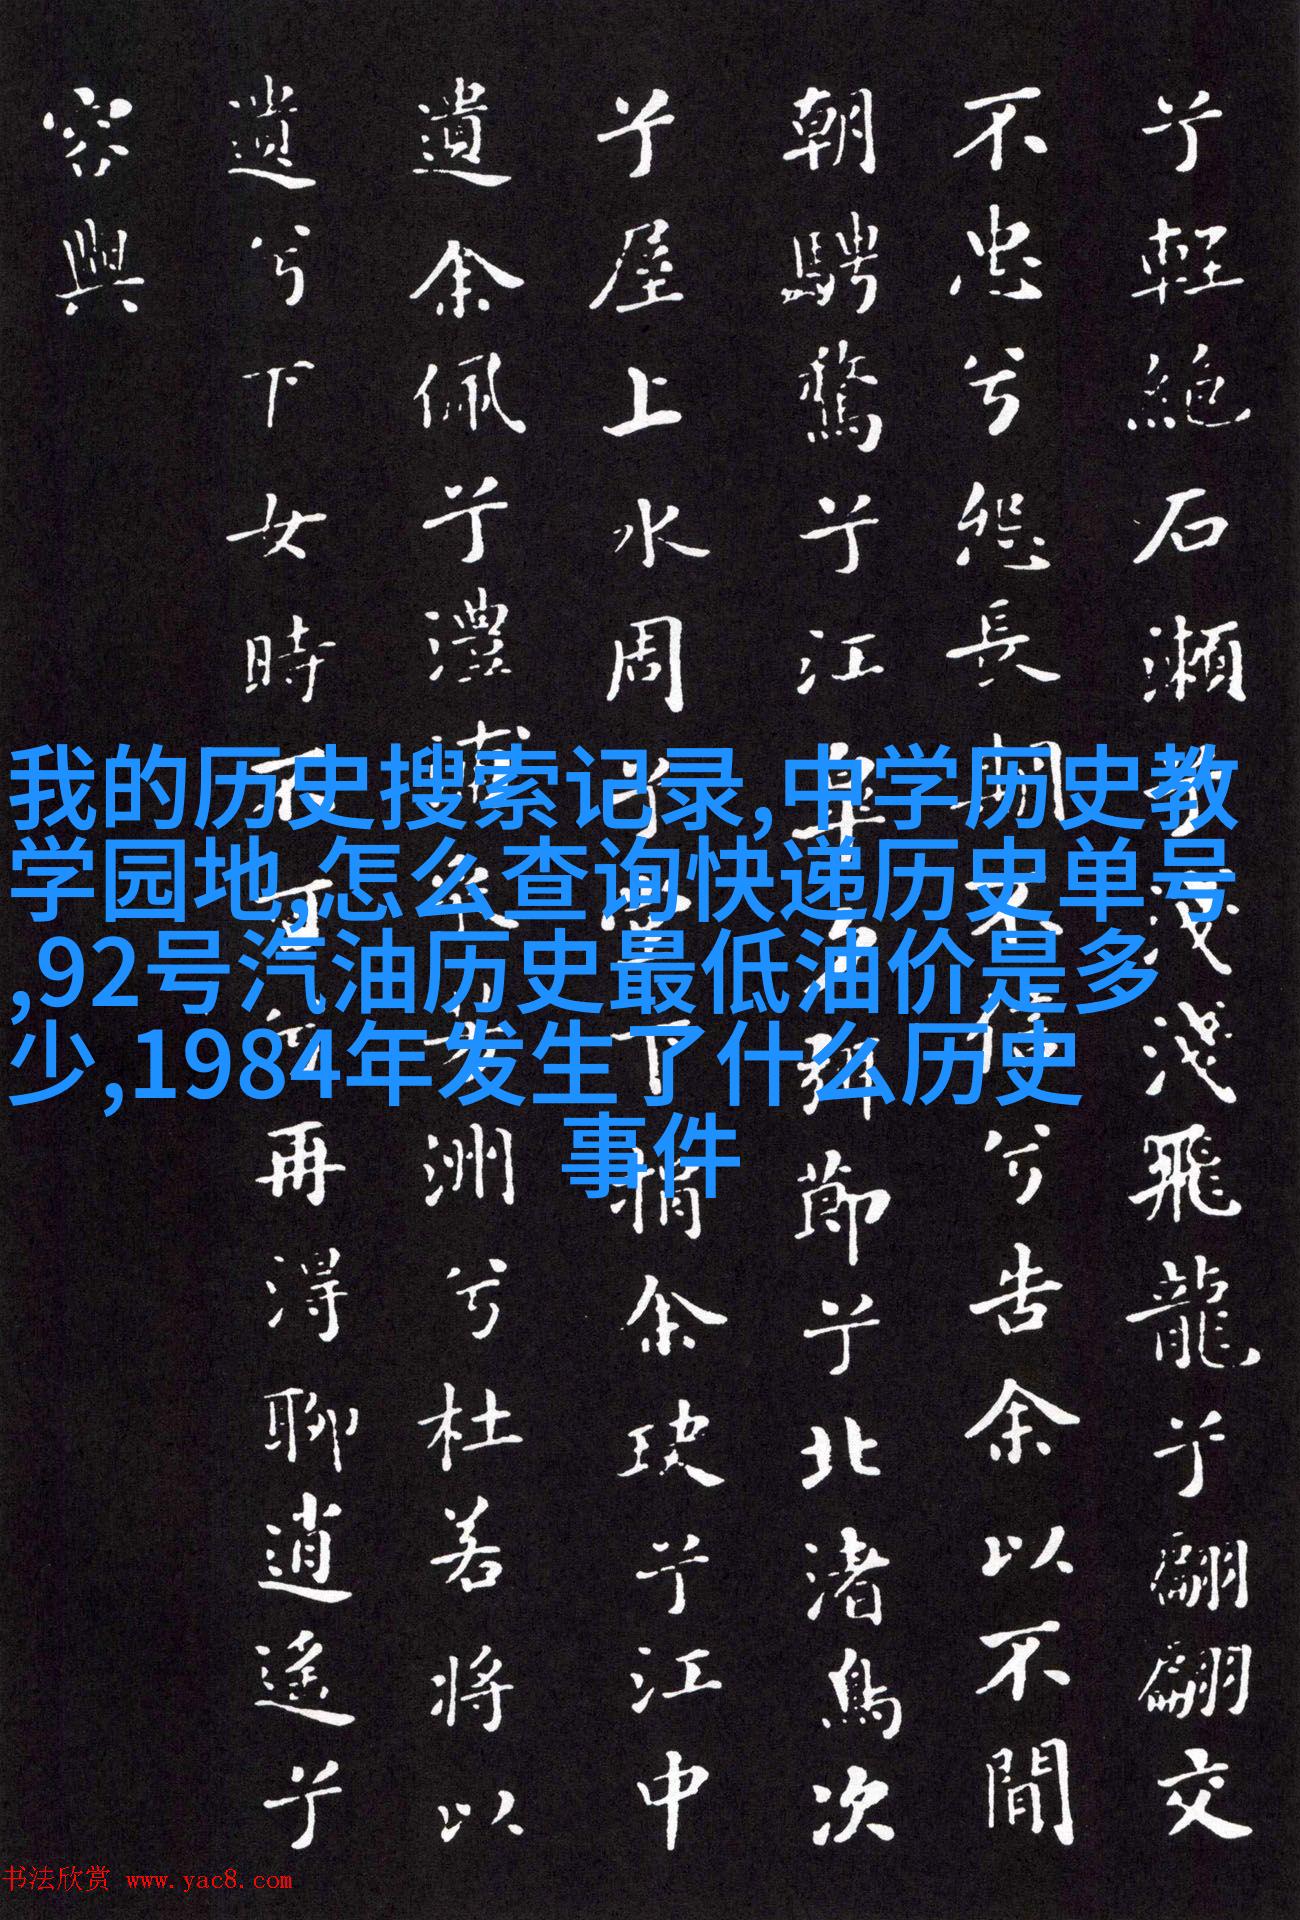 兮輕絕石瀨兮淺淺飛龍兮翩翩交
不忠兮怨長期不信兮告余以不間
朝騁騖兮江皋夕弭節兮北渚鳥次
兮屋上水周兮堂下捐余玦兮江中
遺余佩兮澧浦采芳洲兮杜若將以
遺兮下女時不可兮再得聊逍遙兮
容與
我的历史搜索记录,中学历史教
学园地,怎么查询快递历史单号
,92号汽油历史最低油价是多
少,1984年发生了什么历史
事件
书法欣赏 www.yac8.com